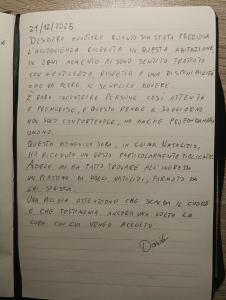 21/12/2025
DESIDERO ANNOTARE QUANTO SIA STATA PREZIOSA
L'ACCOGLIENZA RICEVUTA IN QUESTA ABITAZIONE
IN OGNI MOMENTO MI SONO SENTITO TRATTATO
CON GENTILEZZA, RISPETTO E UNA DISPONIBILITÀ
CHE VA OLTRE IL SEMPLICE DOVERE.
È RARO INCONTRARE PERSONE COSÌ ATTENTE
E PREMUROSE, E QUESTO RENDE IL SOGGIORNO
NON SOLO CONFORTEVOLE, MA ANCHE PROFONDAMENTE
UMANO.
QUESTA DOMENICA SERA, IN CLIMA NATALIZIO,
HO RICEVUTO UN GESTO PARTICOLARMENTE DELICATO:
ADELE MI HA FATTO TROVARE ALL'INGRESSO
UN PIATTINO DI DOLCI NATALIZI, FIRMATO DA
LEI STESSA.
UNA PICCOLA ATTENZIONE CHE SCALDA IL CUORE
E CHE TESTIMONIA ANCORA UNA VOLTA LA
CURA CON CUI VENGO ACCOLTO.